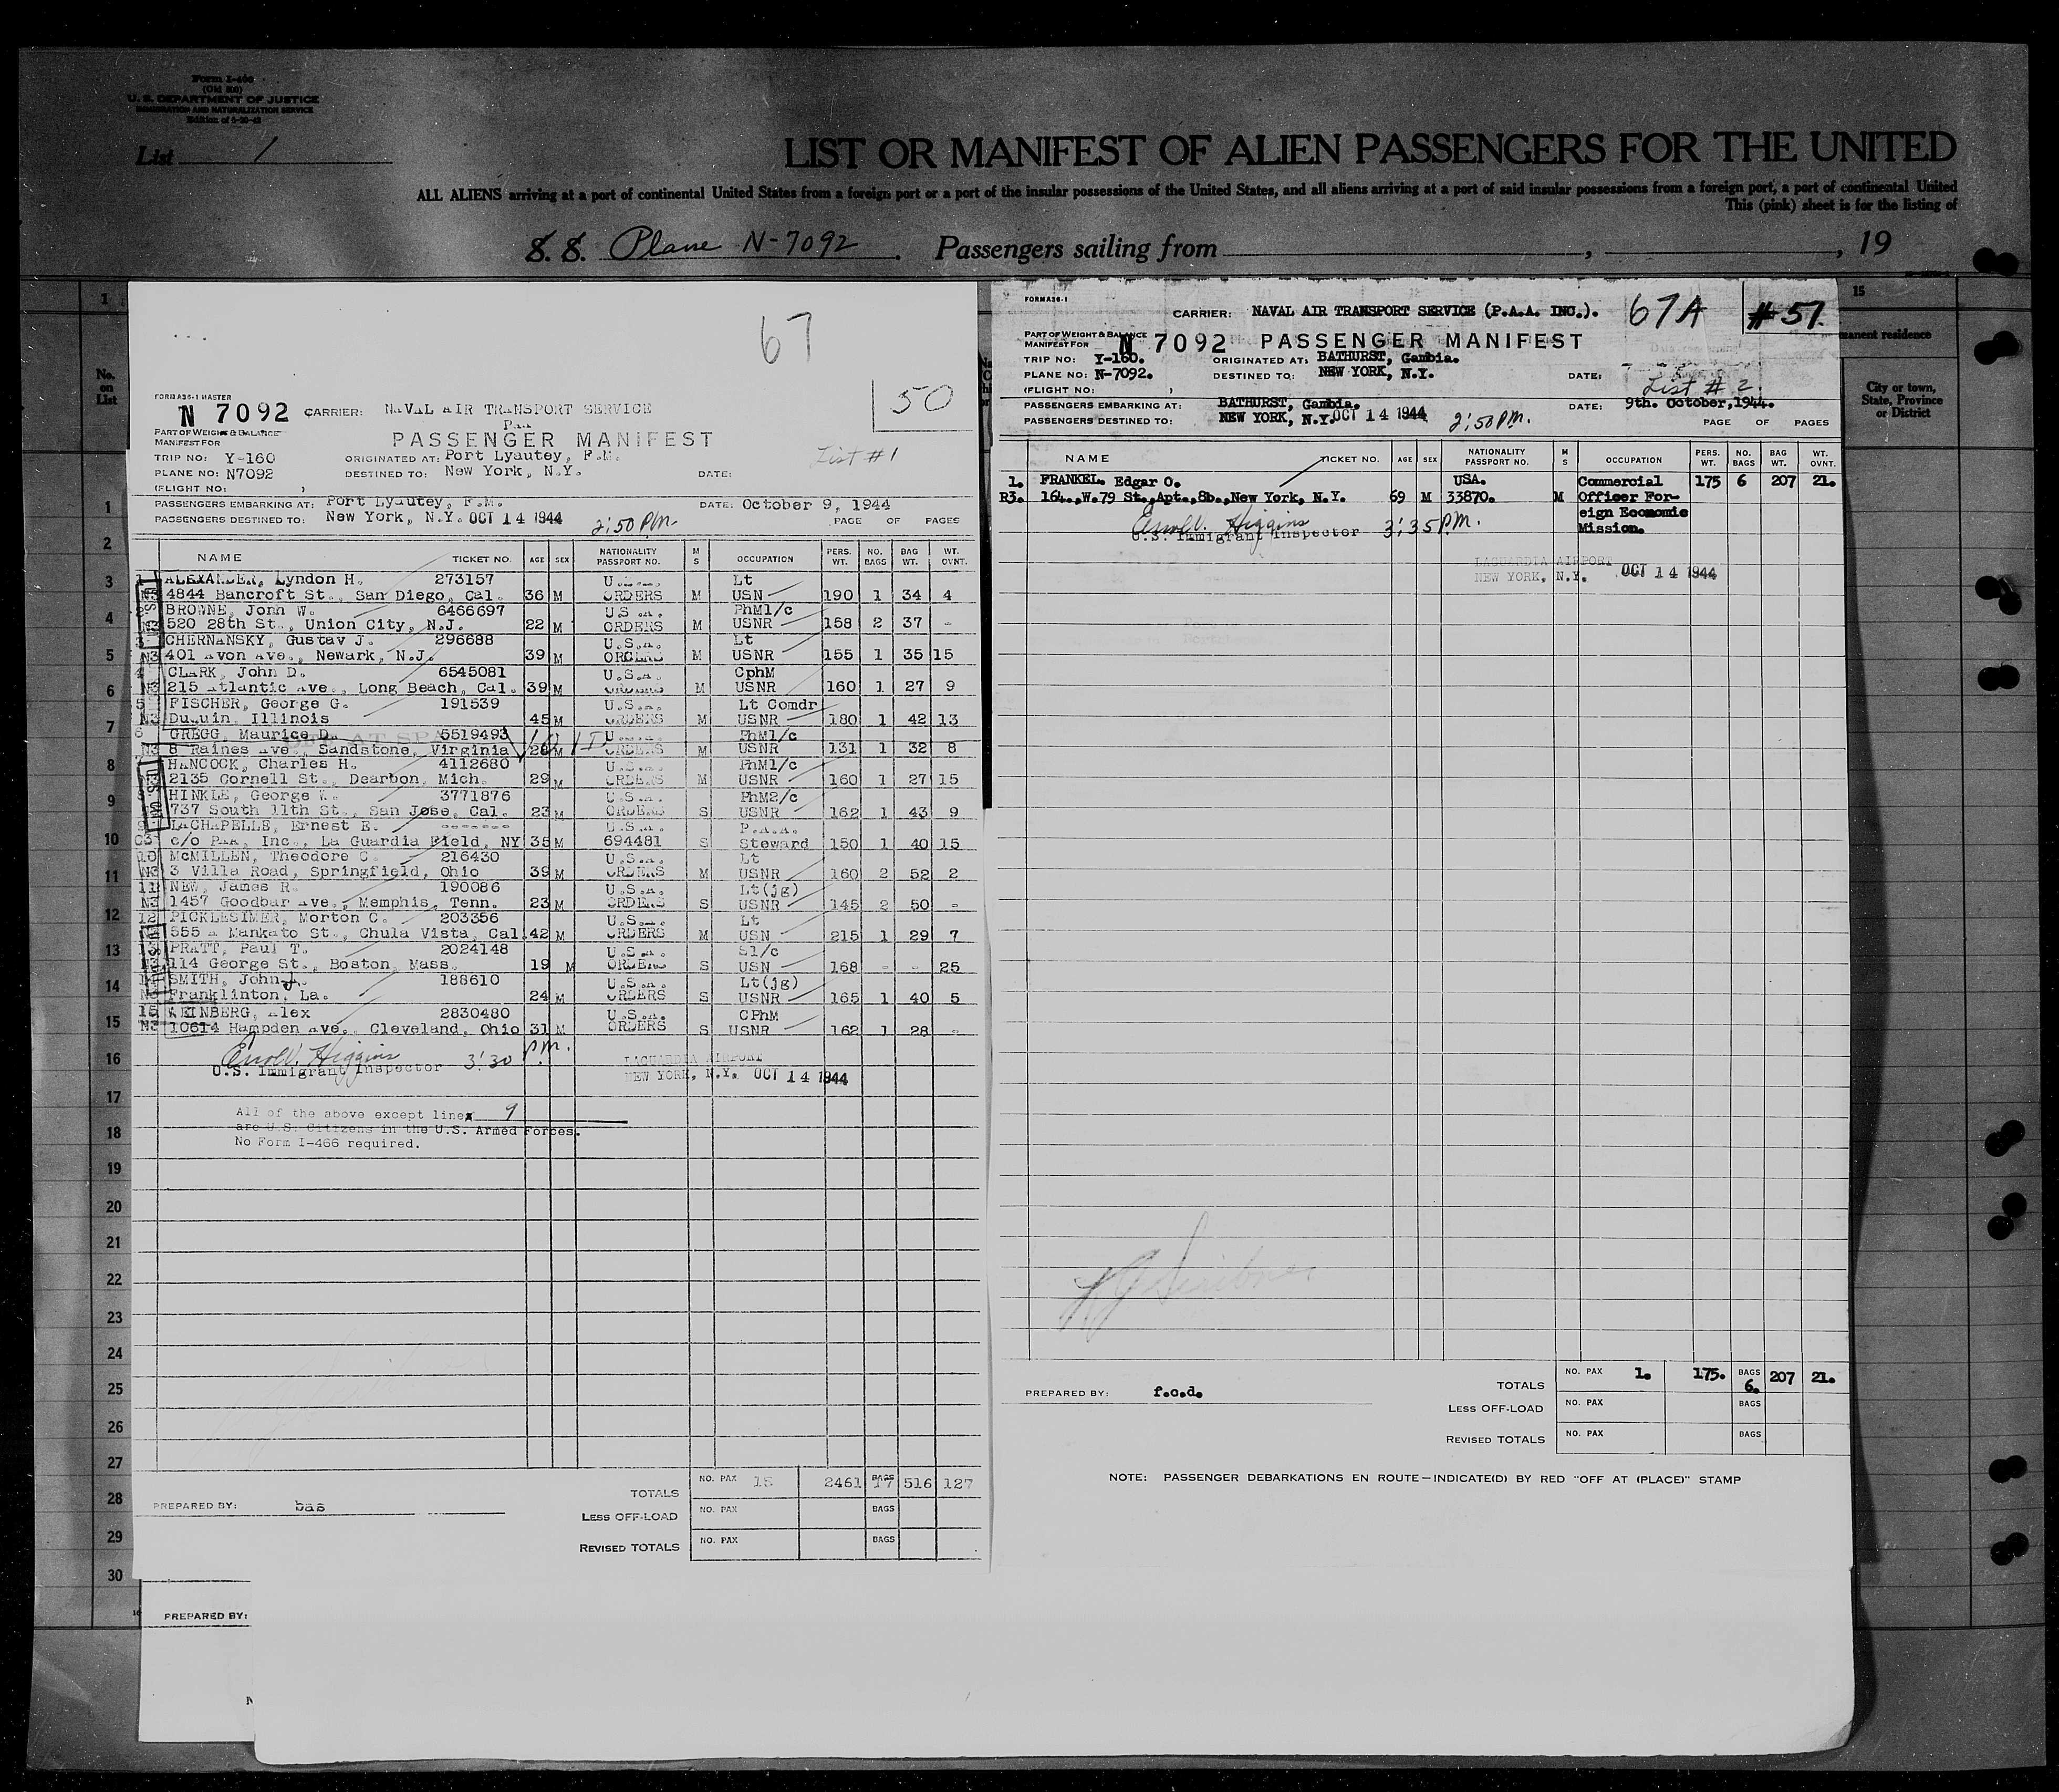 Form I-466
(Old 500)
U. S. DEPARTMENT OF JUSTICE
IMMIGRATION AND NATURALIZATION SERVICE
List 1
LIST OR MANIFEST OF ALIEN PASSENGERS FOR THE UNITED
ALL ALIENS arriving at a port of continental United States from a foreign port or a port of the insular possessions of the United States, and all aliens arriving at a port of said insular possessions from a foreign port, a port of continental United
This (pink) sheet is for the listing of
S. S. Plane N-7092. Passengers sailing from , , 19
67
50
FORM A36-1 MASTER
N 7092 CARRIER: NAVAL AIR TRANSPORT SERVICE
PART OF WEIGHT & BALANCE
MANIFEST FOR
PASSENGER MANIFEST
List #1
TRIP NO: Y-160 ORIGINATED AT: Port Lyautey, F.M.
PLANE NO: N7092 DESTINED TO: New York, N.Y. DATE:
(FLIGHT NO: )
PASSENGERS EMBARKING AT: Port Lyautey, F.M. DATE: October 9, 1944
PASSENGERS DESTINED TO: New York, N.Y. OCT 14 1944 2:50 P.M. PAGE OF PAGES
NAME TICKET NO. AGE SEX NATIONALITY PASSPORT NO. M S OCCUPATION PERS. WT. NO. BAGS BAG WT. WT. OVNT.
1 ALEXANDER, Lyndon H. 273157 U.S.A. Lt
N3 4844 Bancroft St., San Diego, Cal. 36 M ORDERS M USN 190 1 34 4
BROWNE, John W. 6466697 U.S.A. PhM1/c
520 28th St., Union City, N.J. 22 M ORDERS M USNR 158 2 37 -
3 CHERNANSKY, Gustav J. 296688 U.S.A. Lt
N3 401 Avon Ave., Newark, N.J. 39 M ORDERS M USNR 155 1 35 15
4 CLARK, John D. 6545081 U.S.A. CphM
N3 215 Atlantic Ave., Long Beach, Cal. 39 M ORDERS M USNR 160 1 27 9
5 FISCHER, George G. 191539 U.S.A. Lt Comdr
N3 Duquin, Illinois 45 M ORDERS M USNR 180 1 42 13
6 GREGG, Maurice D. 5519493 U.S.A. PhM1/c
N3 8 Raines Ave., Sandstone, Virginia 26 M ORDERS M USNR 131 1 32 8
HANCOCK, Charles H. 4112680 U.S.A. PhM1/c
2135 Cornell St., Dearbon, Mich. 29 M ORDERS M USNR 160 1 27 15
HINKLE, George W. 3771876 U.S.A. PhM2/c
737 South 11th St., San Jose, Cal. 23 M ORDERS S USNR 162 1 43 9
9 LACHAPELLE, Ernest E. -------- U.S.A. P.A.A.
c/o PAA, Inc., La Guardia Field, NY 35 M 694481 S Steward 150 1 40 15
10 McMILLEN, Theodore C. 216430 U.S.A. Lt
N3 3 Villa Road, Springfield, Ohio 39 M ORDERS M USNR 160 2 52 2
11 NEW, James R. 190086 U.S.A. Lt(jg)
N3 1457 Goodbar Ave., Memphis, Tenn. 23 M ORDERS S USNR 145 2 50 -
12 PICKLESIMER, Morton C. 203356 U.S.A. Lt
555 A Mankato St., Chula Vista, Cal. 42 M ORDERS M USN 215 1 29 7
13 PRATT, Paul T. 2024148 U.S.A. S1/c
N3 114 George St., Boston, Mass. 19 M ORDERS S USN 168 - - 25
14 SMITH, John J. 188610 U.S.A. Lt(jg)
N3 Franklinton, La. 24 M ORDERS S USNR 165 1 40 5
15 WEINBERG, Alex 2830480 U.S.A. CPhM
N3 10614 Hampden Ave., Cleveland, Ohio 31 M ORDERS S USNR 162 1 28 -
Errol V. Higgins 3:30 P.M.
U.S. Immigrant Inspector
LAGUARDIA AIRPORT
NEW YORK, N.Y. OCT 14 1944
All of the above except lines 9
are U.S. Citizens in the U.S. Armed Forces.
No Form I-466 required.
TOTALS NO. PAX 15 2461 BAGS 17 516 127
PREPARED BY: bas
LESS OFF-LOAD NO. PAX BAGS
REVISED TOTALS NO. PAX BAGS
PREPARED BY:
No. on List
1
2
3
4
5
6
7
8
9
10
11
12
13
14
15
16
17
18
19
20
21
22
23
24
25
26
27
28
29
30
FORM A36-1
CARRIER: NAVAL AIR TRANSPORT SERVICE (P.A.A. INC.). 67A #51.
PART OF WEIGHT & BALANCE
MANIFEST FOR N 7092 PASSENGER MANIFEST
TRIP NO: Y-160. ORIGINATED AT: BATHURST, Gambia.
PLANE NO: N-7092. DESTINED TO: NEW YORK, N.Y. DATE:
List # 2.
(FLIGHT NO: )
PASSENGERS EMBARKING AT: BATHURST, Gambia. DATE: 9th. October, 1944.
PASSENGERS DESTINED TO: NEW YORK, N.Y. OCT 14 1944 2:50 P.M. PAGE OF PAGES
NAME TICKET NO. AGE SEX NATIONALITY PASSPORT NO. M S OCCUPATION PERS. WT. NO. BAGS BAG WT. WT. OVNT.
1. FRANKEL. Edgar O. USA. Commercial 175 6 207 21.
R3. 164.,W.79 St.,Apt.,8b.,New York, N.Y. 69 M 33870. M Officer For-
eign Economic
Mission.
Errol V. Higgins 3:35 P.M.
U.S. Immigrant Inspector
LAGUARDIA AIRPORT
NEW YORK, N.Y. OCT 14 1944
TOTALS NO. PAX 1. 175. BAGS 6. 207 21.
PREPARED BY: f.c.d.
LESS OFF-LOAD NO. PAX BAGS
REVISED TOTALS NO. PAX BAGS
NOTE: PASSENGER DEBARKATIONS EN ROUTE—INDICATE(D) BY RED "OFF AT (PLACE)" STAMP
15
manent residence
City or town,
State, Province
or District